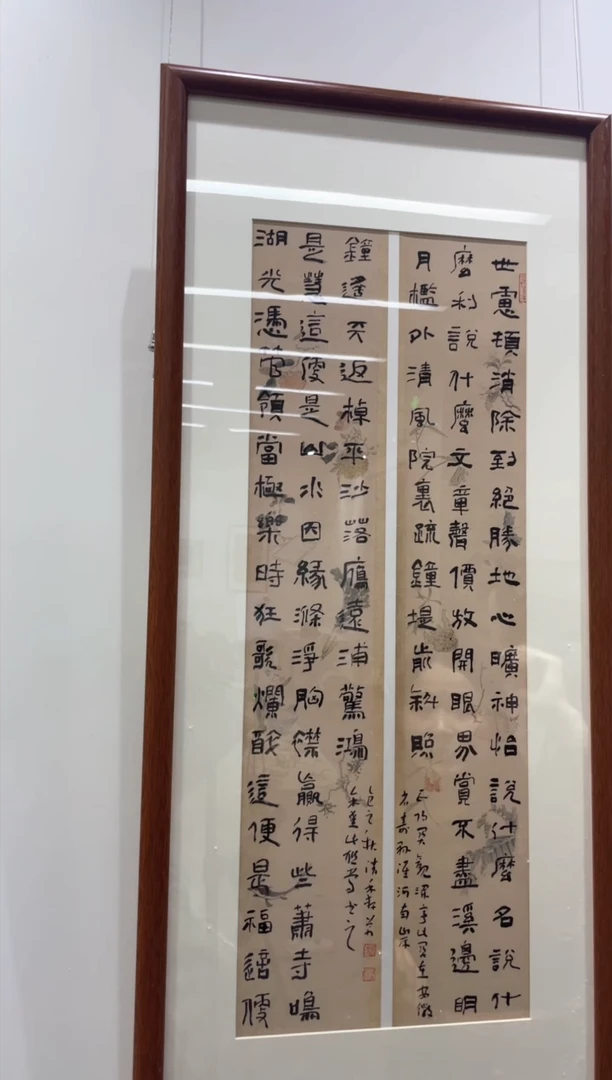 世慮頓消除到絕勝地心曠神怡說什麼名說什
麼利說什麼文章聲價放開眼界賞不盡溪邊明
月檻外清風院裏疏鐘堤前斜照
湖光憑管領當極樂時狂歌爛醉這便是福這便
是慧這便是山水因緣滌淨胸襟贏得些蕭寺鳴
鐘遙天返棹平沙落鴈遠浦驚鴻